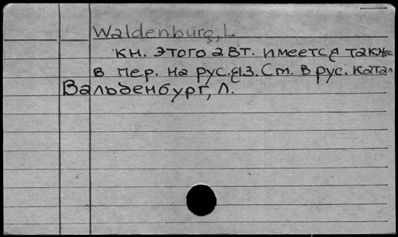 Waldenburg, L.
кн. этого авт. имеется также
в пер. на рус. яз. См. в рус. катал
Вальденбург, Л.